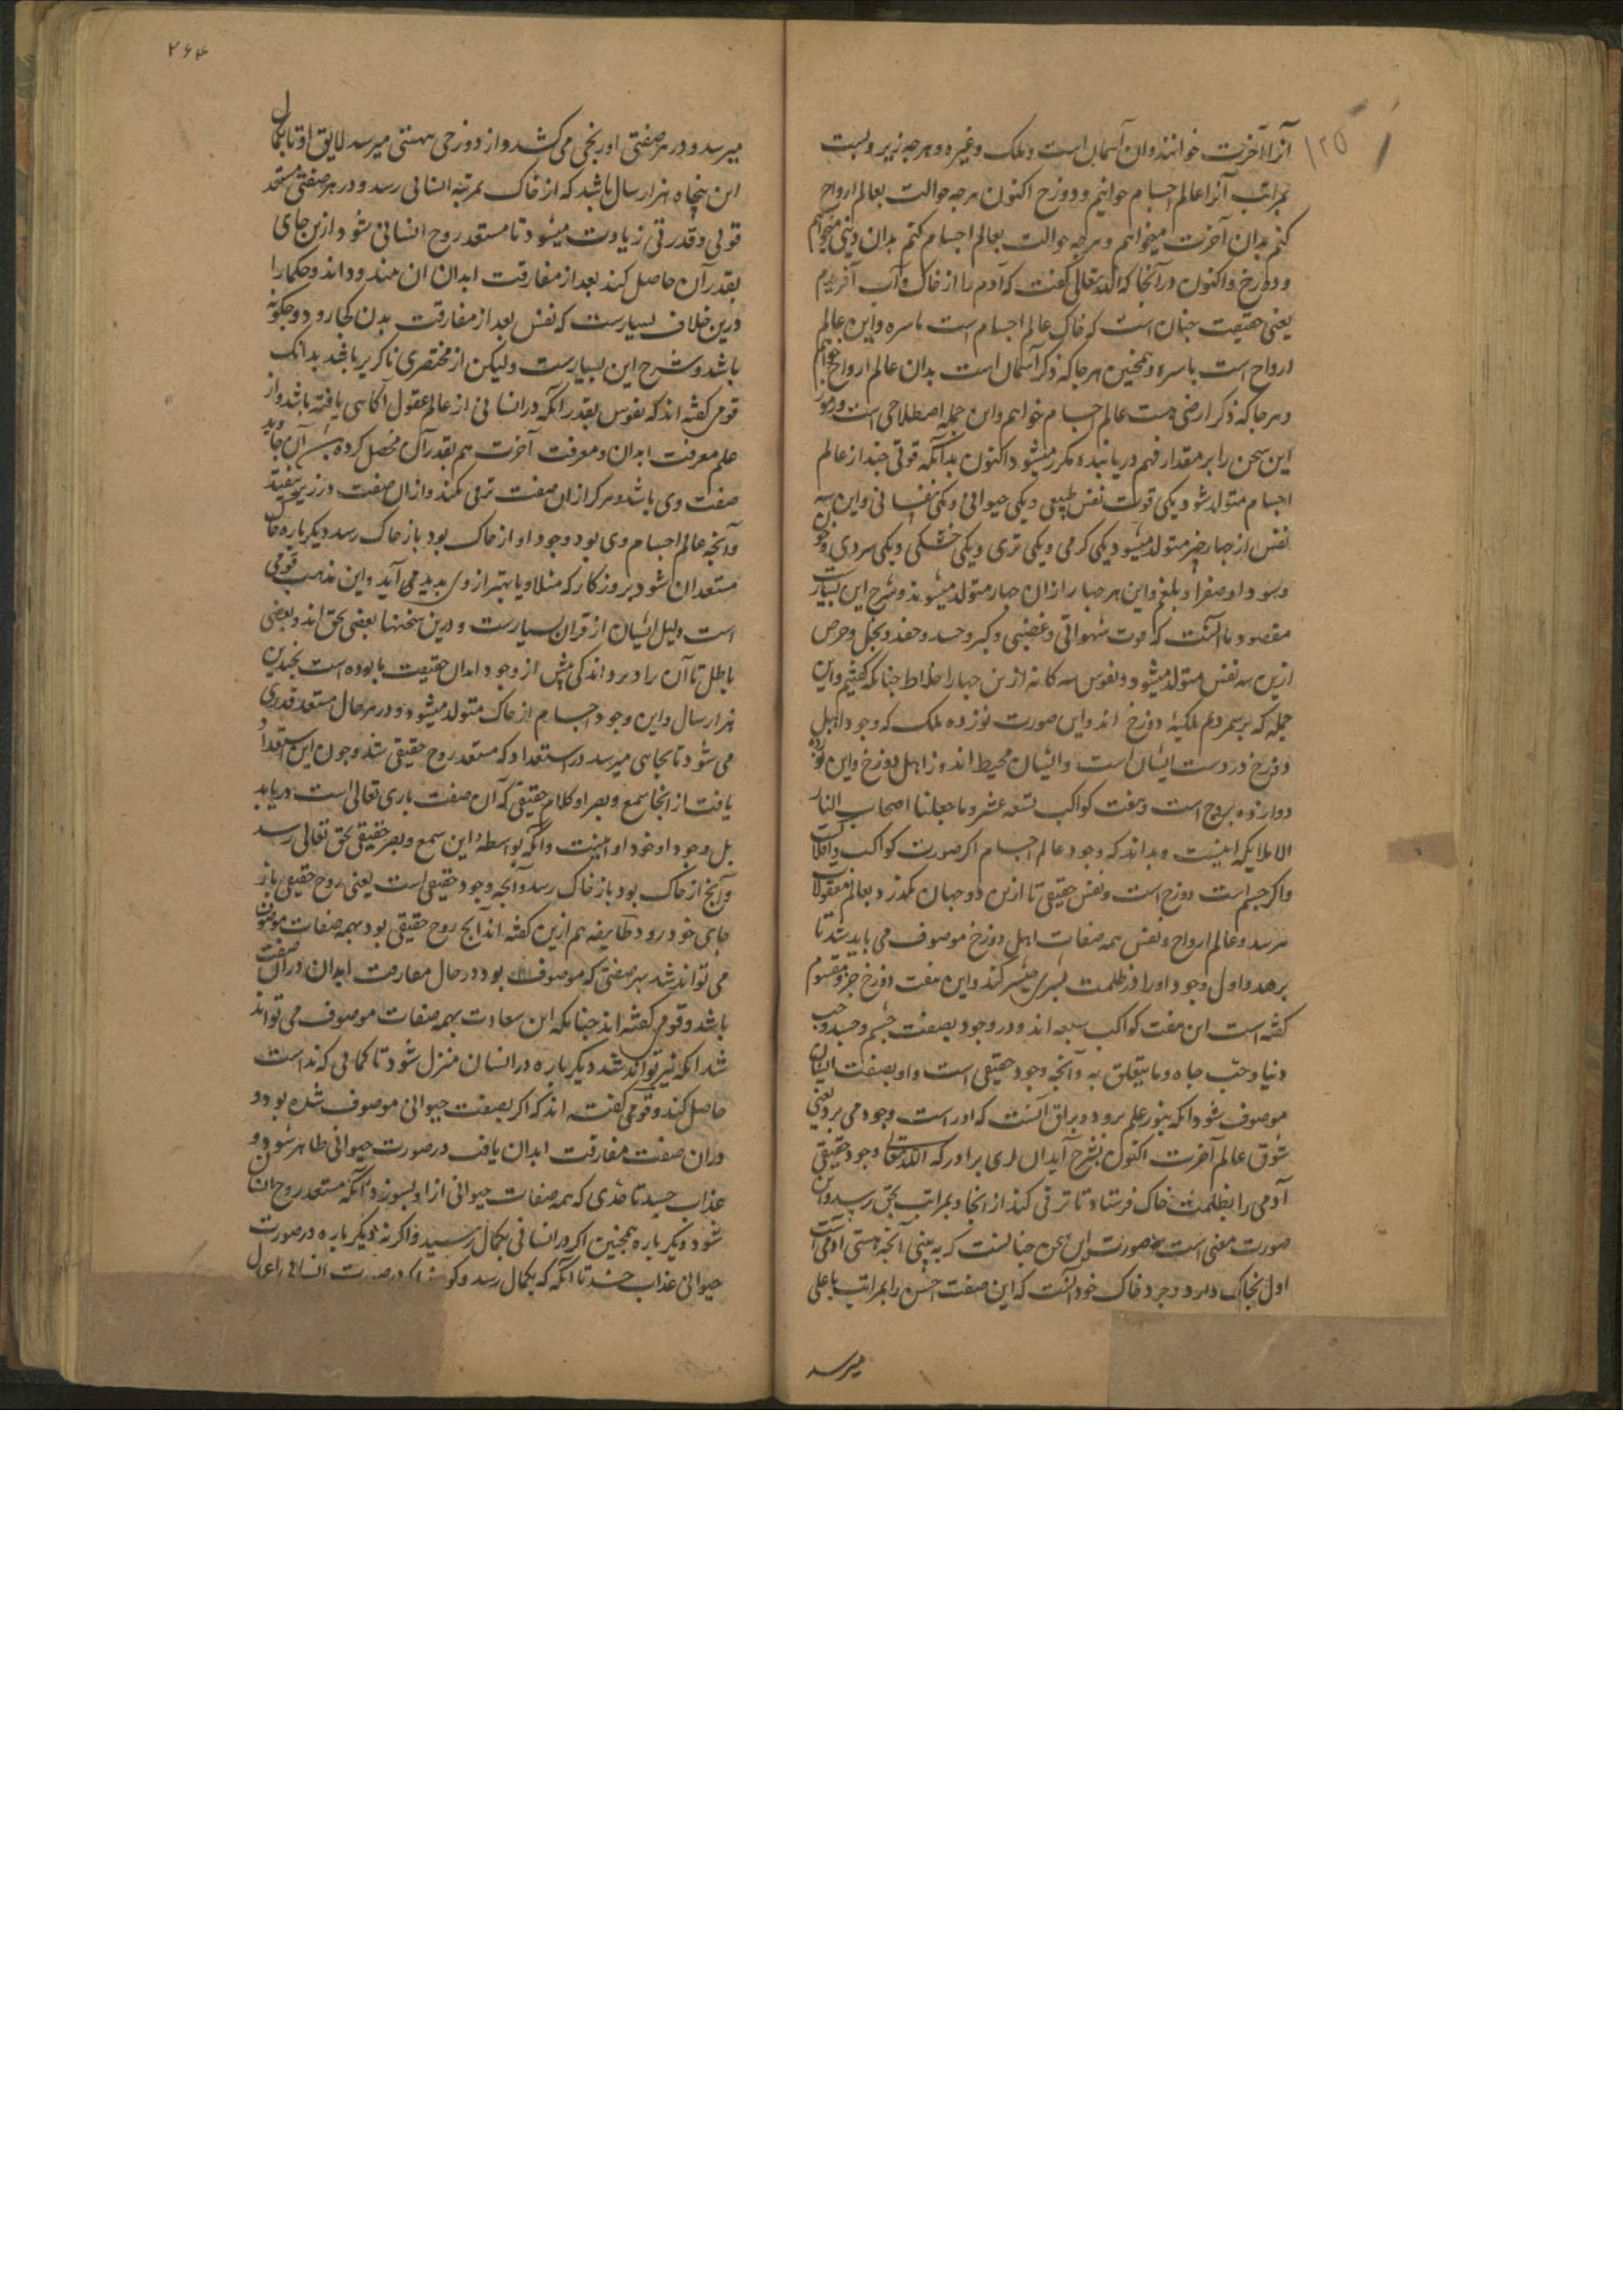 ۱۲۵
آنرا آخرت خوانند وان آسمان است و ملک و غیره و هرچه زیر و پست
بمراتب آنرا عالم اجسام خوانیم و دوزخ اکنون هرچه حوالت بعالم ارواح
کنم بدان آخرت میخواهم و هرچه حوالت بعالم اجسام کنم بدان دینی میخواهم
و دوزخ و اکنون در آنجا که الله تعالی گفت که آدم را از خاک و آب آفریدم
یعنی حقیقت چنان است که خاک عالم اجسام است باسره و این عالم
ارواح است باسره و همچنین هرجا که ذکر آسمان است بدان عالم ارواح خواهم
و هرجا که ذکر ارض هست عالم اجسام خواهم و این جمله اصطلاحی است و رموز
این سخن را بر مقدار فهم دریابنده مکرر میشود اکنون بدانکه قوتی چند از عالم
اجسام متولد شود یکی قوت نفس طبیعی و یکی حیوانی و یکی نفسانی و این سه
نفس از چهار چیز متولد میشود یکی گرمی و یکی تری و یکی خشکی و یکی سردی و خون
و سودا و صفرا و بلغم و این هر چهار از ان چهار متولد میشوند و شرح این بسیارست
مقصود ما آنست که قوت شهوانی و غضبی و کبر و حسد و حقد و بخل و حرص
ازین سه نفس متولد میشود و نفوس سه کانه ازین چهار اخلاط چنانکه گفتیم و این
جمله که برشمردم ملکیه دوزخ اند و این صورت نوزده ملک که وجود اهل
دوزخ در دست ایشان است و ایشان محیط اند و از اهل دوزخ و این نوزده
دوازده بروج است و هفت کواکب تسعه عشر و ما جعلنا اصحاب النار
الا ملایکه اینست و بداند که وجود عالم اجسام اگر صورت کواکب و افلاکست
و اگر جسم است دوزخ است و نفس حقیقی تا ازین دو جهان نگذرد بعالم معقولات
نرسد و عالم ارواح و نفس همه صفات اهل دوزخ موصوف می باید شد تا
برهد و اول وجود او را در ظلمت بسری میسر کند و این هفت دوزخ جزو مقسوم
گفته است این هفت کواکب سبعه اند و در وجود بصفت خشم و حسد و حب
دنیا و حب جاه و ما یتعلق به و آنچه وجود حقیقی است و او بصفت ایشان
موصوف شود انکه بنور علم برود و براق آنست که ادراست وجود می برد یعنی
شوق عالم آخرت اکنون بشرح آید ان ای برادر که الله تعالی وجود حقیقی
آدمی را بظلمت خاک فرستاد تا ترقی کند از انجا و بمراتب بحق رسد و این
صورت معنی است و صورت این سخن چنانست که ببینی آنچه هستی آدمی است
اول بخاک دارد وجود خاک خود آنست که این صفت اخس را بمراتب باعلی
میرسد
۲۶۴
میرسد و در هر صفتی او رنجی می کشد و از دوزخی بهشتی میرسد لایق او تا بکمال
این پنجاه هزار سال باشد که از خاک بمرتبه انسانی رسد و در هر صفتی مستعد
قوتی و قدرتی زیادت میشود تا مستعد روح انسانی شود ازین جای
بقدر آن حاصل کند بعد از مفارقت ابدان ان بیند و داند و حکما را
درین خلاف بسیارست که نفس بعد از مفارقت بدن کجا رود و چگونه
باشد و شرح این بسیارست ولیکن از مختصری ناگزیر باشد بدانک
قومی گفته اند که نفوس بقدر آنکه در انسانی از عالم عقول آگاهی یافته باشد و از
علم معرفت ابدان و معرفت آخرت هم بقدر آن محصل کرده
صفت وی باشد و هرگز از ان صفت ترقی نکند و از ان صفت در زیر نیفتد
و آنچه عالم اجسام وی بود وجود او از خاک بود باز خاک رسد دیگر باره خاک
مستعد ان شود بروزگار که مثل او یا بهتر از وی پدید می آید و این مذهب قومی
است و دلیل ایشان از قران بسیارست و درین سخنها بعضی بحق اند و بعضی
باطل تا آن را در برواند کی پیش از وجود ابدان حقیقت ما بوده است بچندین
هزار سال و این وجود اجسام از خاک متولد میشود و در هر حال مستعد قدری
می شود تا بجایی میرسد در استعداد که مستعد روح حقیقی شد و چون این استعداد
یافت از انجا سمع و بصر او کلام حقیقی که آن صفت باری تعالی است دریابد
بل وجود او خود او اینست و آنکه بواسطه این سمع و بصر حقیقی بحق تعالی رسد
و آنچ از خاک بود باز خاک رسد و آنچه وجود حقیقی است یعنی روح حقیقی باز
جای خود رود و طایفه هم ازین گفته اند آنچ روح حقیقی بود بهمه صفات موصوف
می تواند شد بهر صفتی که موصوف بود در حال مفارقت ابدان در ان صفت
باشد و قومی گفته اند چنانکه این سعادت بهمه صفات موصوف می تواند
شد انکه نیز تواند شد دیگر باره در انسان منزل شود تا کمالی که نداشت
حاصل کند و قومی گفته اند که اگر بصفت حیوانی موصوف شده بود و
در ان صفت مفارقت ابدان یافت در صورت حیوانی ظاهر شود و
عذاب چشد تا حدی که همه صفات حیوانی از او بسوزد و آنکه مستعد روح انسان
شود دیگر باره همچنین اگر در انسانی بکمال رسید و اگر نه دیگر باره در صورت
حیوانی عذاب چشد تا آنکه که بکمال رسد و در صورت انسان